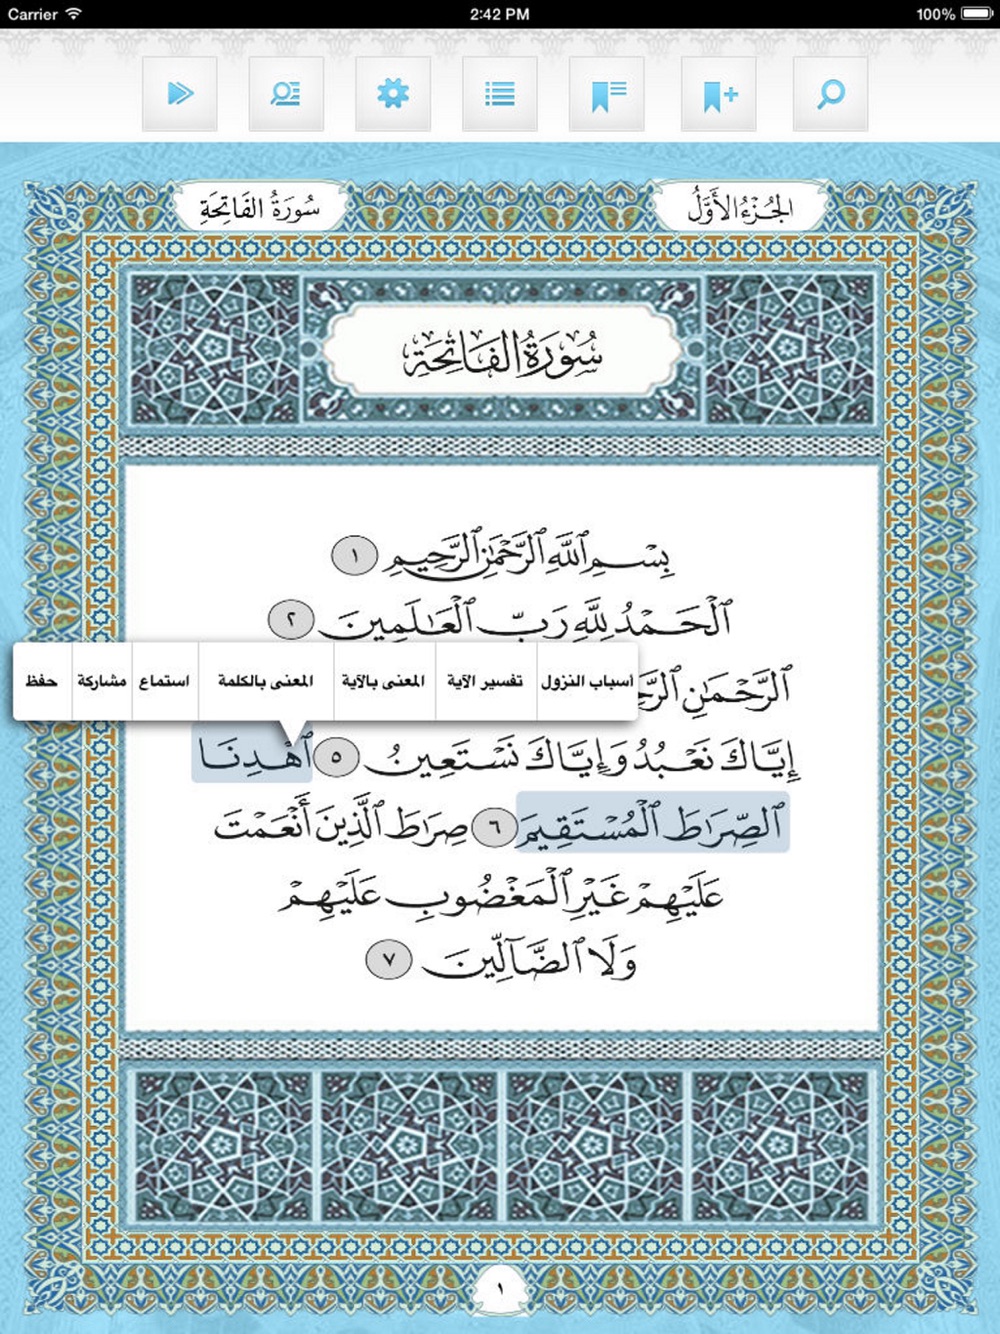 Carrier 2:42 PM 100%
الجُزْءُ الأَوَّلُ
سُورَةُ الفَاتِحَةِ
سُورَةُ الفَاتِحَةِ
بِسْمِ ٱللَّهِ ٱلرَّحْمَٰنِ ٱلرَّحِيمِ ١
ٱلْحَمْدُ لِلَّهِ رَبِّ ٱلْعَٰلَمِينَ ٢
أسباب النزول تفسير الآية المعنى بالآية المعنى بالكلمة استماع مشاركة حفظ
ٱلرَّحْمَٰنِ
إِيَّاكَ نَعْبُدُ وَإِيَّاكَ نَسْتَعِينُ ٥ ٱهْدِنَا
ٱلصِّرَٰطَ ٱلْمُسْتَقِيمَ ٦ صِرَٰطَ ٱلَّذِينَ أَنْعَمْتَ
عَلَيْهِمْ غَيْرِ ٱلْمَغْضُوبِ عَلَيْهِمْ
وَلَا ٱلضَّآلِّينَ ٧
١